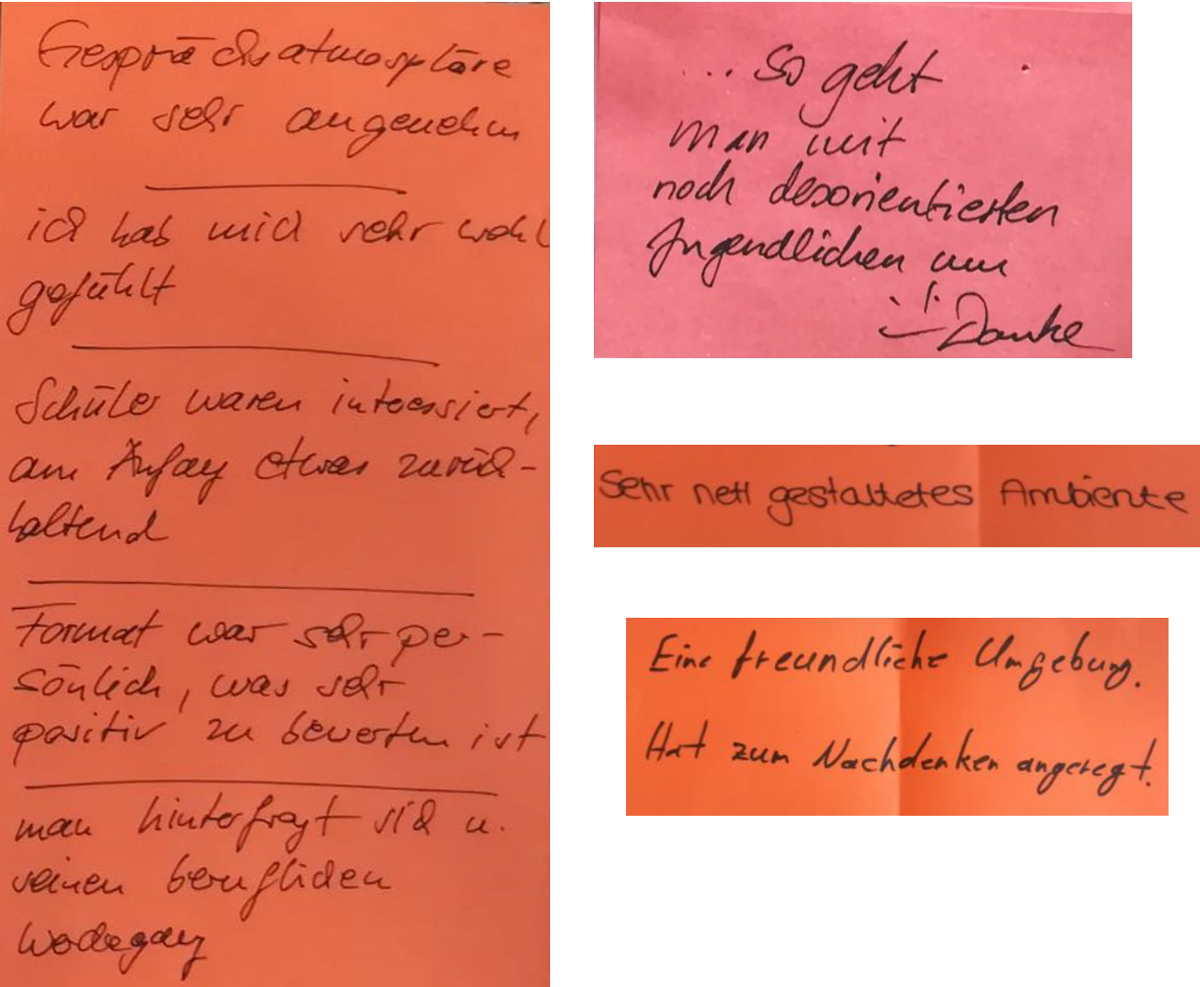 Gesprächsatmosphäre
war sehr angenehm
ich hab mich sehr wohl
gefühlt
Schüler waren interessiert,
am Anfang etwas zurück-
haltend
Format war sehr per-
sönlich, was sehr
positiv zu bewerten ist
man hinterfragt sich u.
seinen beruflichen
Werdegang
... So geht
man mit
noch desorientierten
Jugendlichen um
Danke
Sehr nett gestaltetes Ambiente
Eine freundliche Umgebung.
Hat zum Nachdenken angeregt.